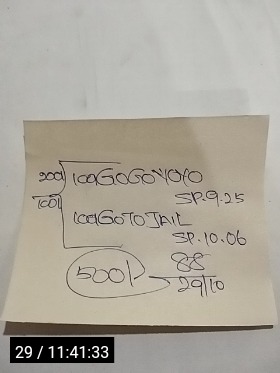 200) 109GOGOYOYO
SP.9.25
100) 109GOTOJAIL
SP.10.06
500/ 88
29/10
29 / 11:41:33